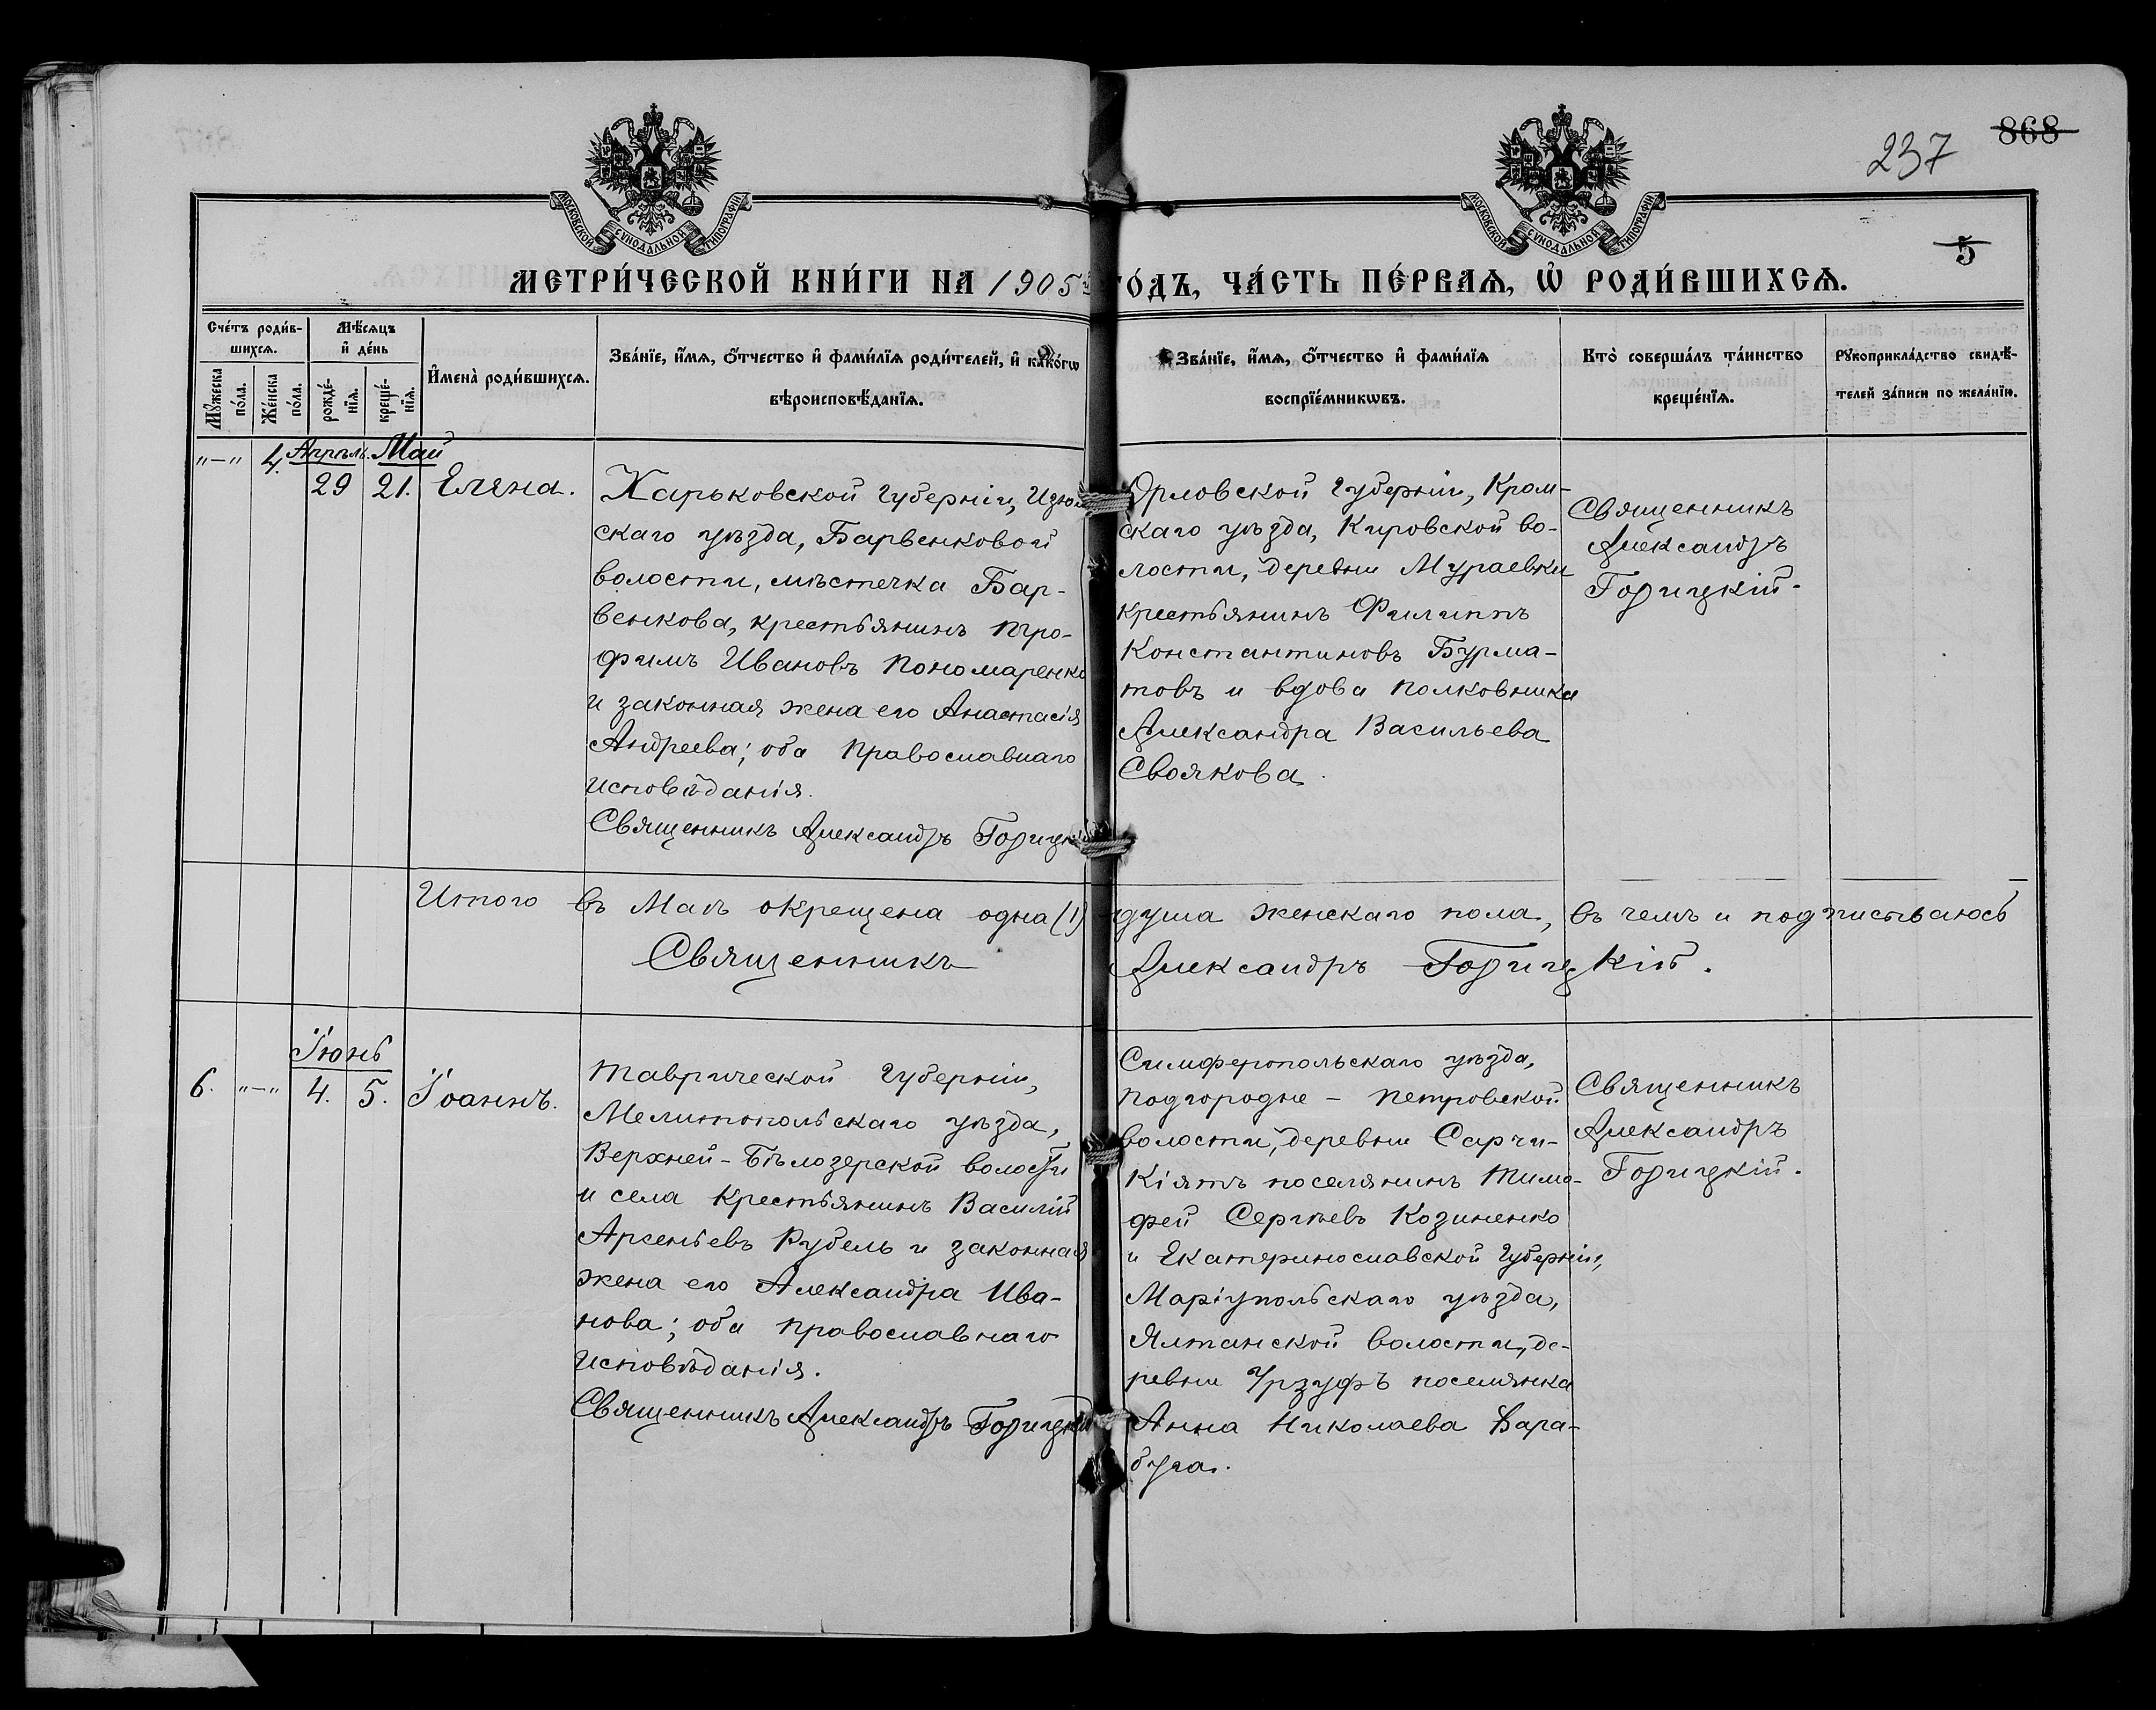 868
237
5
МОСКОВСКОЙ СѴНОДАЛЬНОЙ ТИПОГРАФІИ
МОСКОВСКОЙ СѴНОДАЛЬНОЙ ТИПОГРАФІИ
МЕТРИ́ЧЕСКОЙ КНИ́ГИ НА 1905 ГО́ДЪ, ЧА́СТЬ ПЕ́РВАѦ, Ѡ҆ РОДИ́ВШИХСѦ.
Сче́тъ роди́в-
шихсѧ.
Мꙋ́жеска
по́ла.
Же́нска
по́ла.
Мѣ́сѧцъ
и҆ де́нь
рожде́-
нїѧ.
креще́-
нїѧ.
И҆мена̀ роди́вшихсѧ.
Зва́нїе, и҆́мѧ, ѻ҆́тчество и҆ фами́лїѧ роди́телей, и҆ како́гѡ
вѣроисповѣ́данїѧ.
Зва́нїе, и҆́мѧ, ѻ҆́тчество и҆ фами́лїѧ
воспрїе́мникѡвъ.
Кто̀ соверша́лъ та́инство
креще́нїѧ.
Рꙋкоприкла́дство свидѣ́-
телей за́писи по жела́нїю.
„—„ 4. Апрѣль. Май
29 21. Елена.
Харьковской губерніи, Изюм-
скаго уѣзда, Барвенковой
волости, мѣстечка Бар-
венкова, крестьянинъ Тро-
фимъ Ивановъ Пономаренко
и законная жена его Анастасія
Андреева; оба православнаго
исповѣданія.
Священникъ Александръ Горицкій
Орловской губерніи, Кром-
скаго уѣзда, Кировской во-
лости, деревни Мураевки
крестьянинъ Филиппъ
Константиновъ Бурма-
товъ и вдова полковника
Александра Васильева
Своякова.
Священникъ
Александръ
Горицкій.
Итого въ Маѣ окрещена одна (1) душа женскаго пола, въ чемъ и подписываюсь
Священникъ Александръ Горицкій.
Іюнь
6. „—„ 4. 5. Іоаннъ.
Таврической губерніи,
Мелитопольскаго уѣзда,
Верхней-Бѣлозерской волости
и села крестьянинъ Василій
Арсеньевъ Рубель и законная
жена его Александра Ива-
нова; оба православнаго
исповѣданія.
Священникъ Александръ Горицкій
Симферопольскаго уѣзда,
Подгородне-Петровской
волости, деревни Сарчи-
Кіятъ поселянинъ Тимо-
фей Сергѣевъ Козиненко
и Екатеринославской губерніи,
Маріупольскаго уѣзда,
Ялтинской волости, де-
ревни Урзуфъ поселянка
Анна Николаева Бара-
буга.
Священникъ
Александръ
Горицкій.